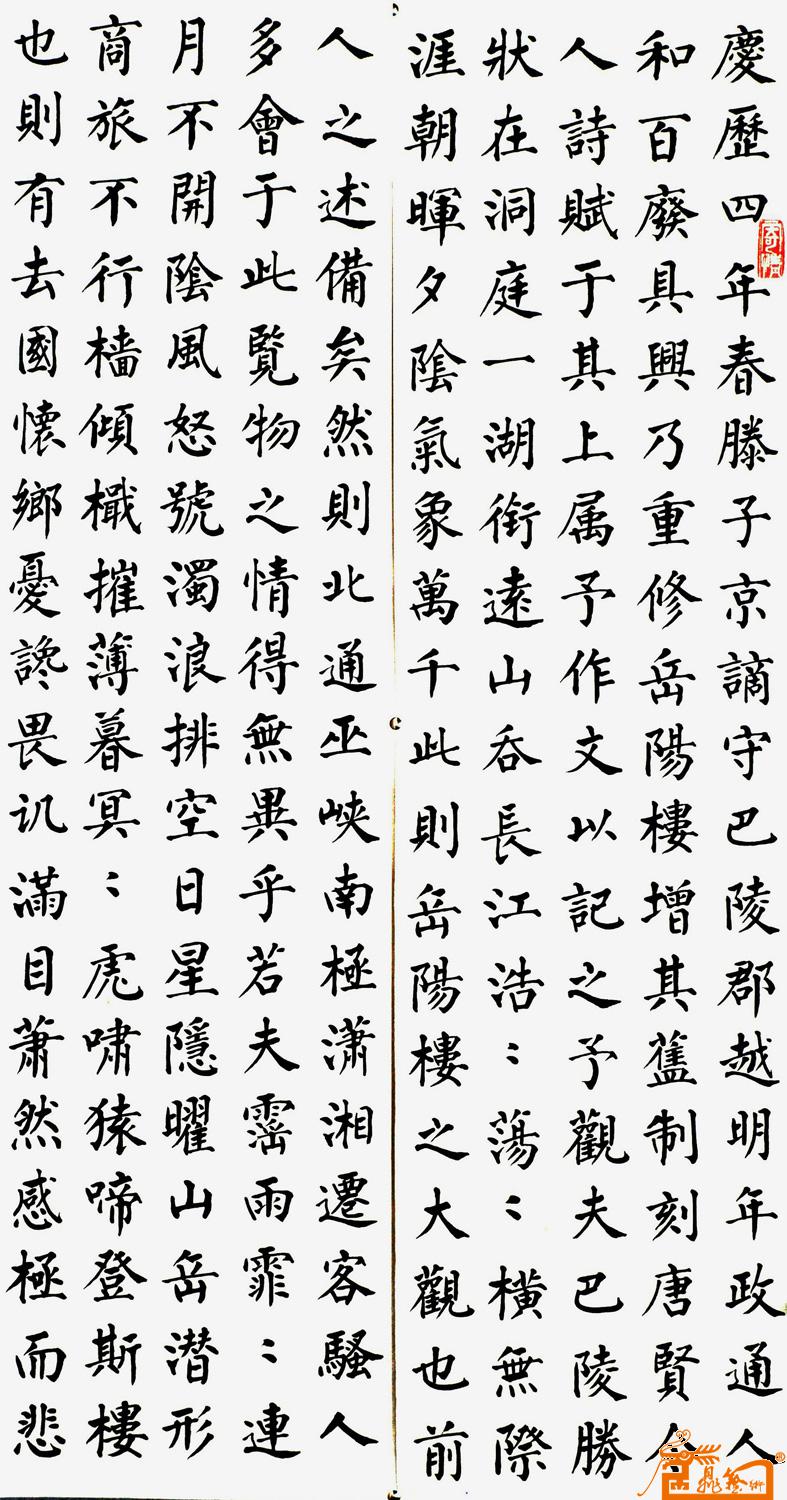 慶歷四年春滕子京謫守巴陵郡越明年政通人
和百廢具興乃重修岳陽樓增其舊制刻唐賢今
人詩賦于其上属予作文以記之予觀夫巴陵勝
狀在洞庭一湖銜遠山吞長江浩〻蕩〻橫無際
涯朝暉夕陰氣象萬千此則岳陽樓之大觀也前
人之述備矣然則北通巫峽南極瀟湘遷客騷人
多會于此覽物之情得無異乎若夫霪雨霏〻連
月不開陰風怒號濁浪排空日星隱曜山岳潜形
商旅不行檣傾檝摧薄暮冥〻虎嘯猿啼登斯樓
也則有去國懷鄉憂讒畏讥滿目蕭然感極而悲